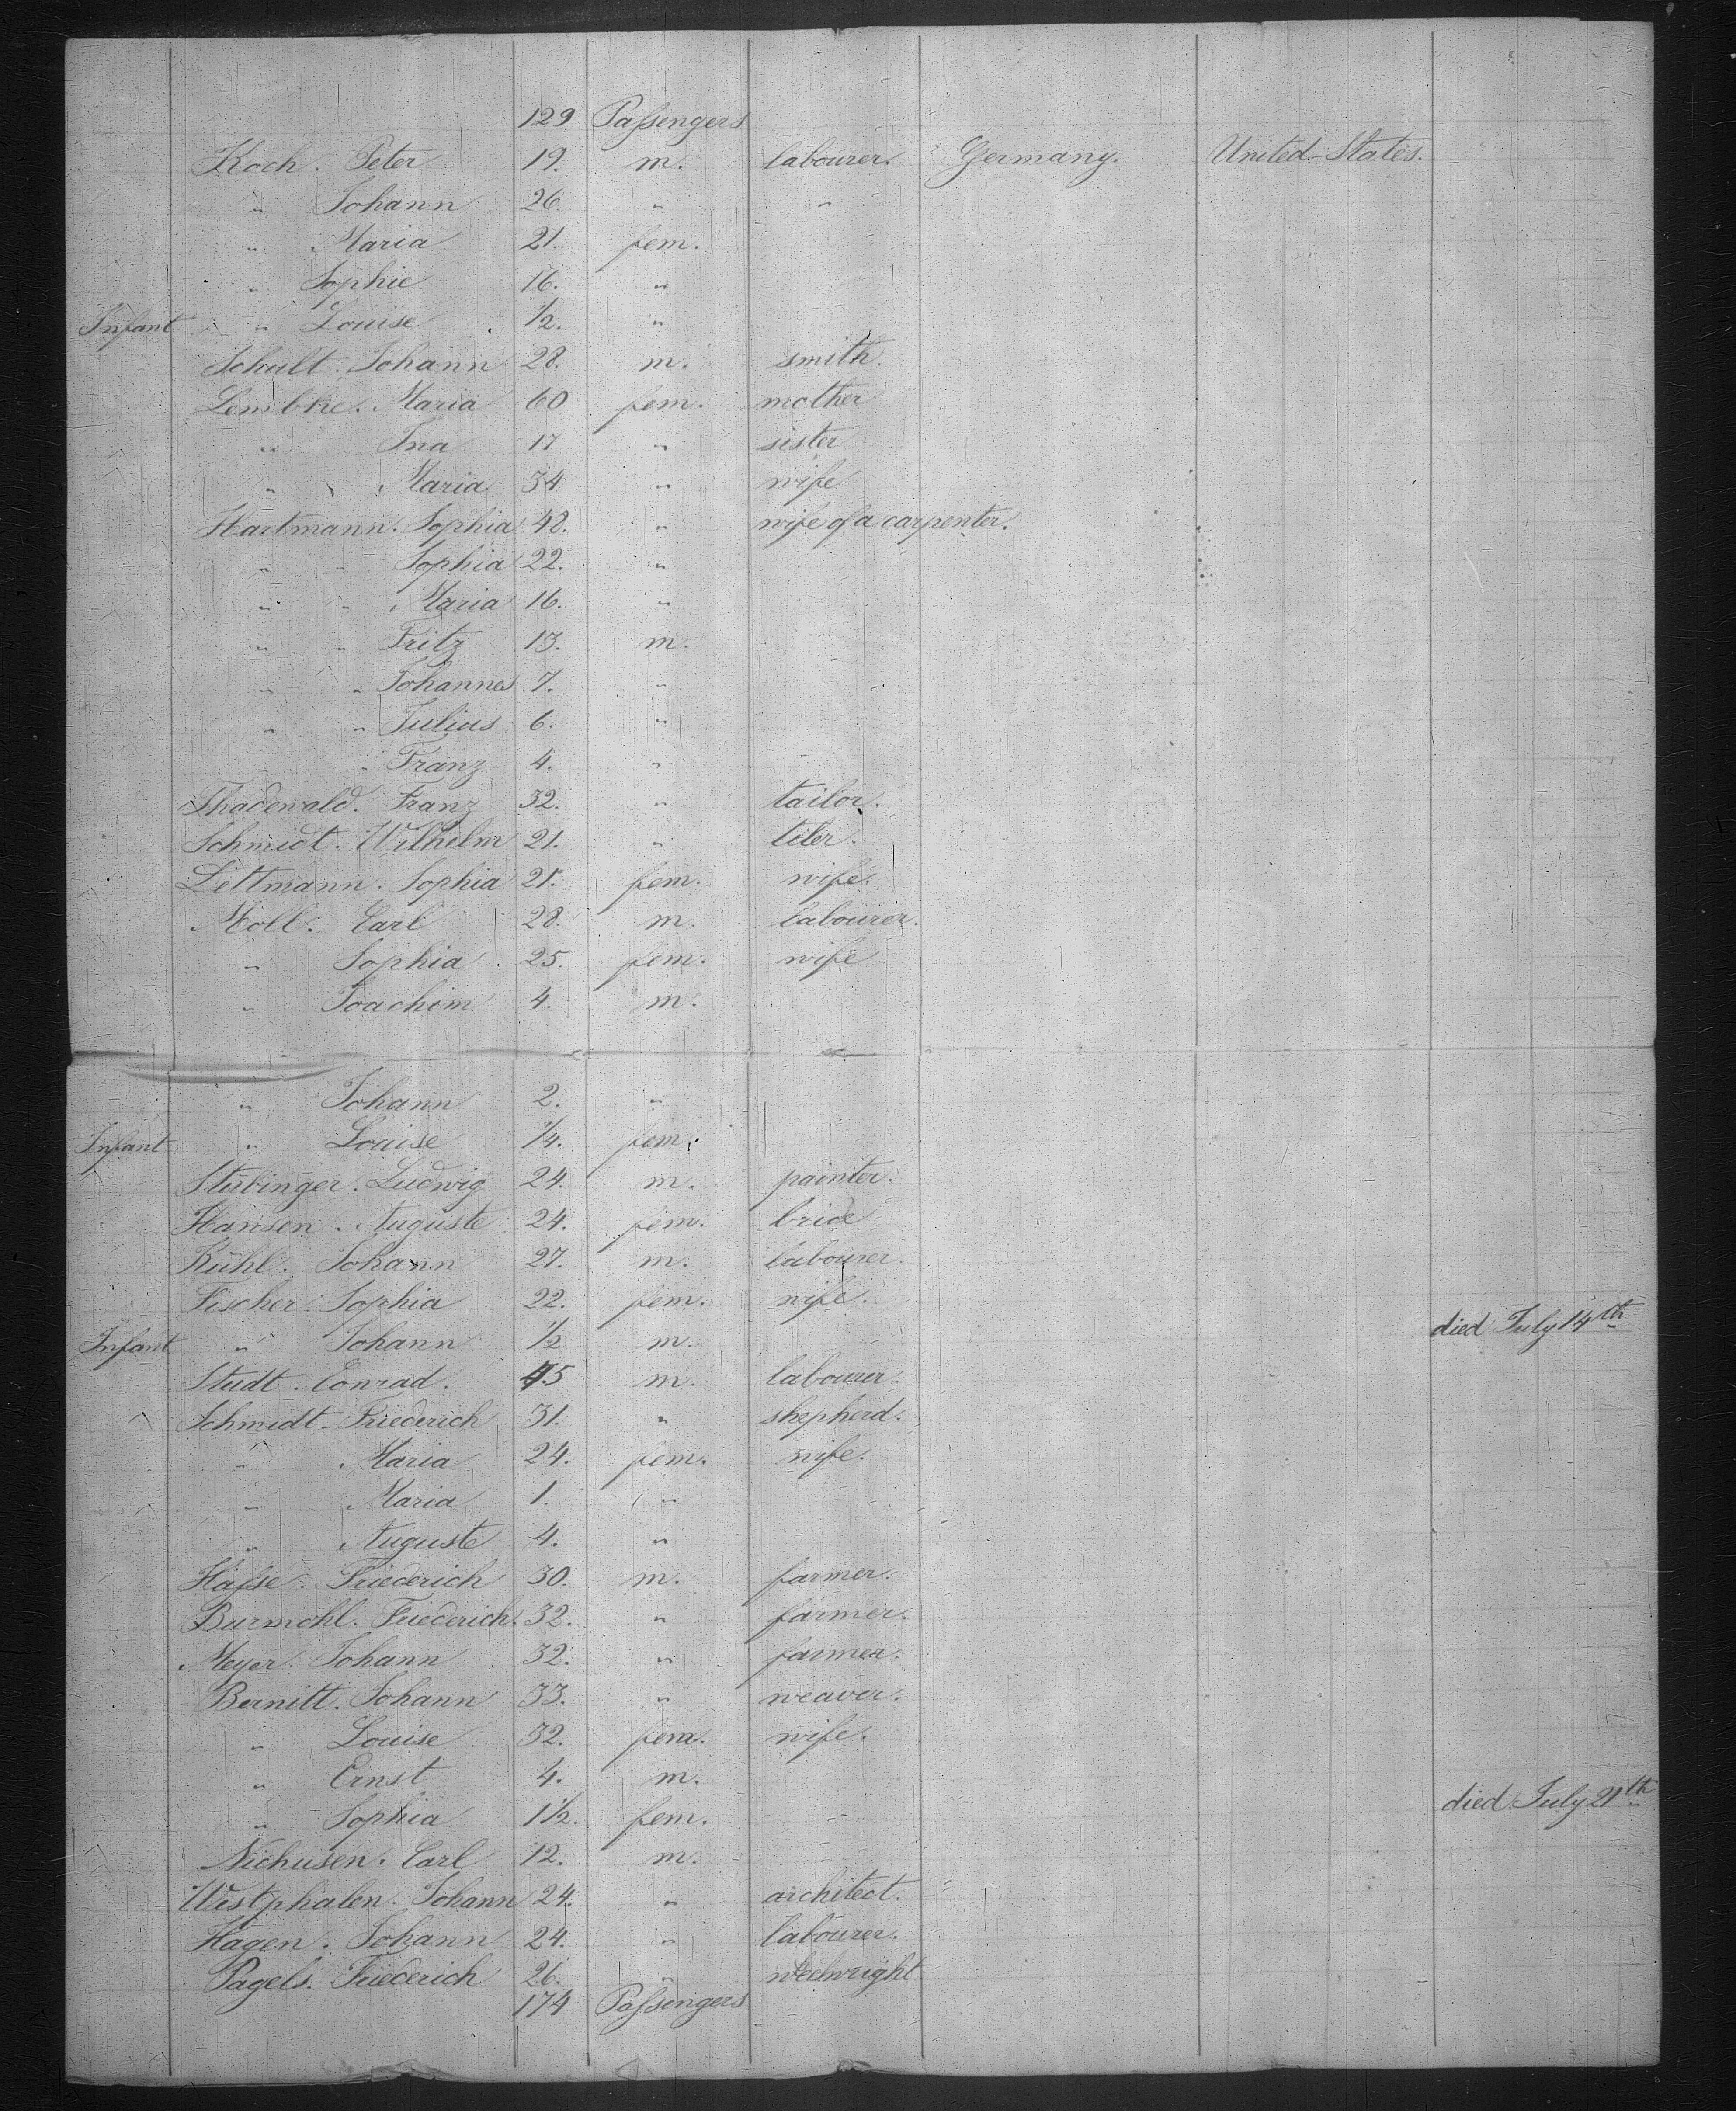 129 Passengers
Koch. Peter 19. m. labourer. Germany. United States.
" Johann 26 " "
" Maria 21. fem.
" Sophie 16. "
Infant " Louise 1/2. "
Schult. Johann 28. m. smith.
Lembke. Maria 60 fem. mother
" Ina 17 " sister
" Maria 34 " wife
Hartmann. Sophia 48. " wife of a carpenter.
" " Sophia 22. "
" " Maria 16. "
" " Fritz 13. m.
" " Johannes 7. "
" " Julius 6. "
" Franz 4. "
Thadewald. Franz 32. " tailor.
Schmidt. Wilhelm 21. " tiler.
Lettmann. Sophia 21. fem. wife.
Moll. Carl 28. m. labourer.
" Sophia 25. fem. wife
" Joachim 4. m.
" Johann 2. "
Infant " Louise 1/4. fem.
Stubinger. Ludwig 24. m. painter.
Hansen. Auguste 24. fem. bride
Kühl. Johann 27. m. labourer.
Fischer. Sophia 22. fem. wife.
Infant " Johann 1/2 m. died July 14th
Studt. Conrad. 45 m. labourer.
Schmidt. Friederich 31. " shepherd.
" Maria 24. fem. wife.
" Maria 1. "
" Auguste 4. "
Hasse. Friederich 30. m. farmer.
Burmohl. Friederich. 32. " farmer.
Meyer. Johann 32. " farmer.
Bernitt. Johann 33. " weaver.
" Louise 32. fem. wife.
" Ernst 4. m.
" Sophia 1 1/2. fem. died July 21th
Niehusen. Carl 12. m.
Westphalen. Johann 24. " architect.
Hagen. Johann 24. " labourer.
Pagels. Friederich 26. "
174 Passengers